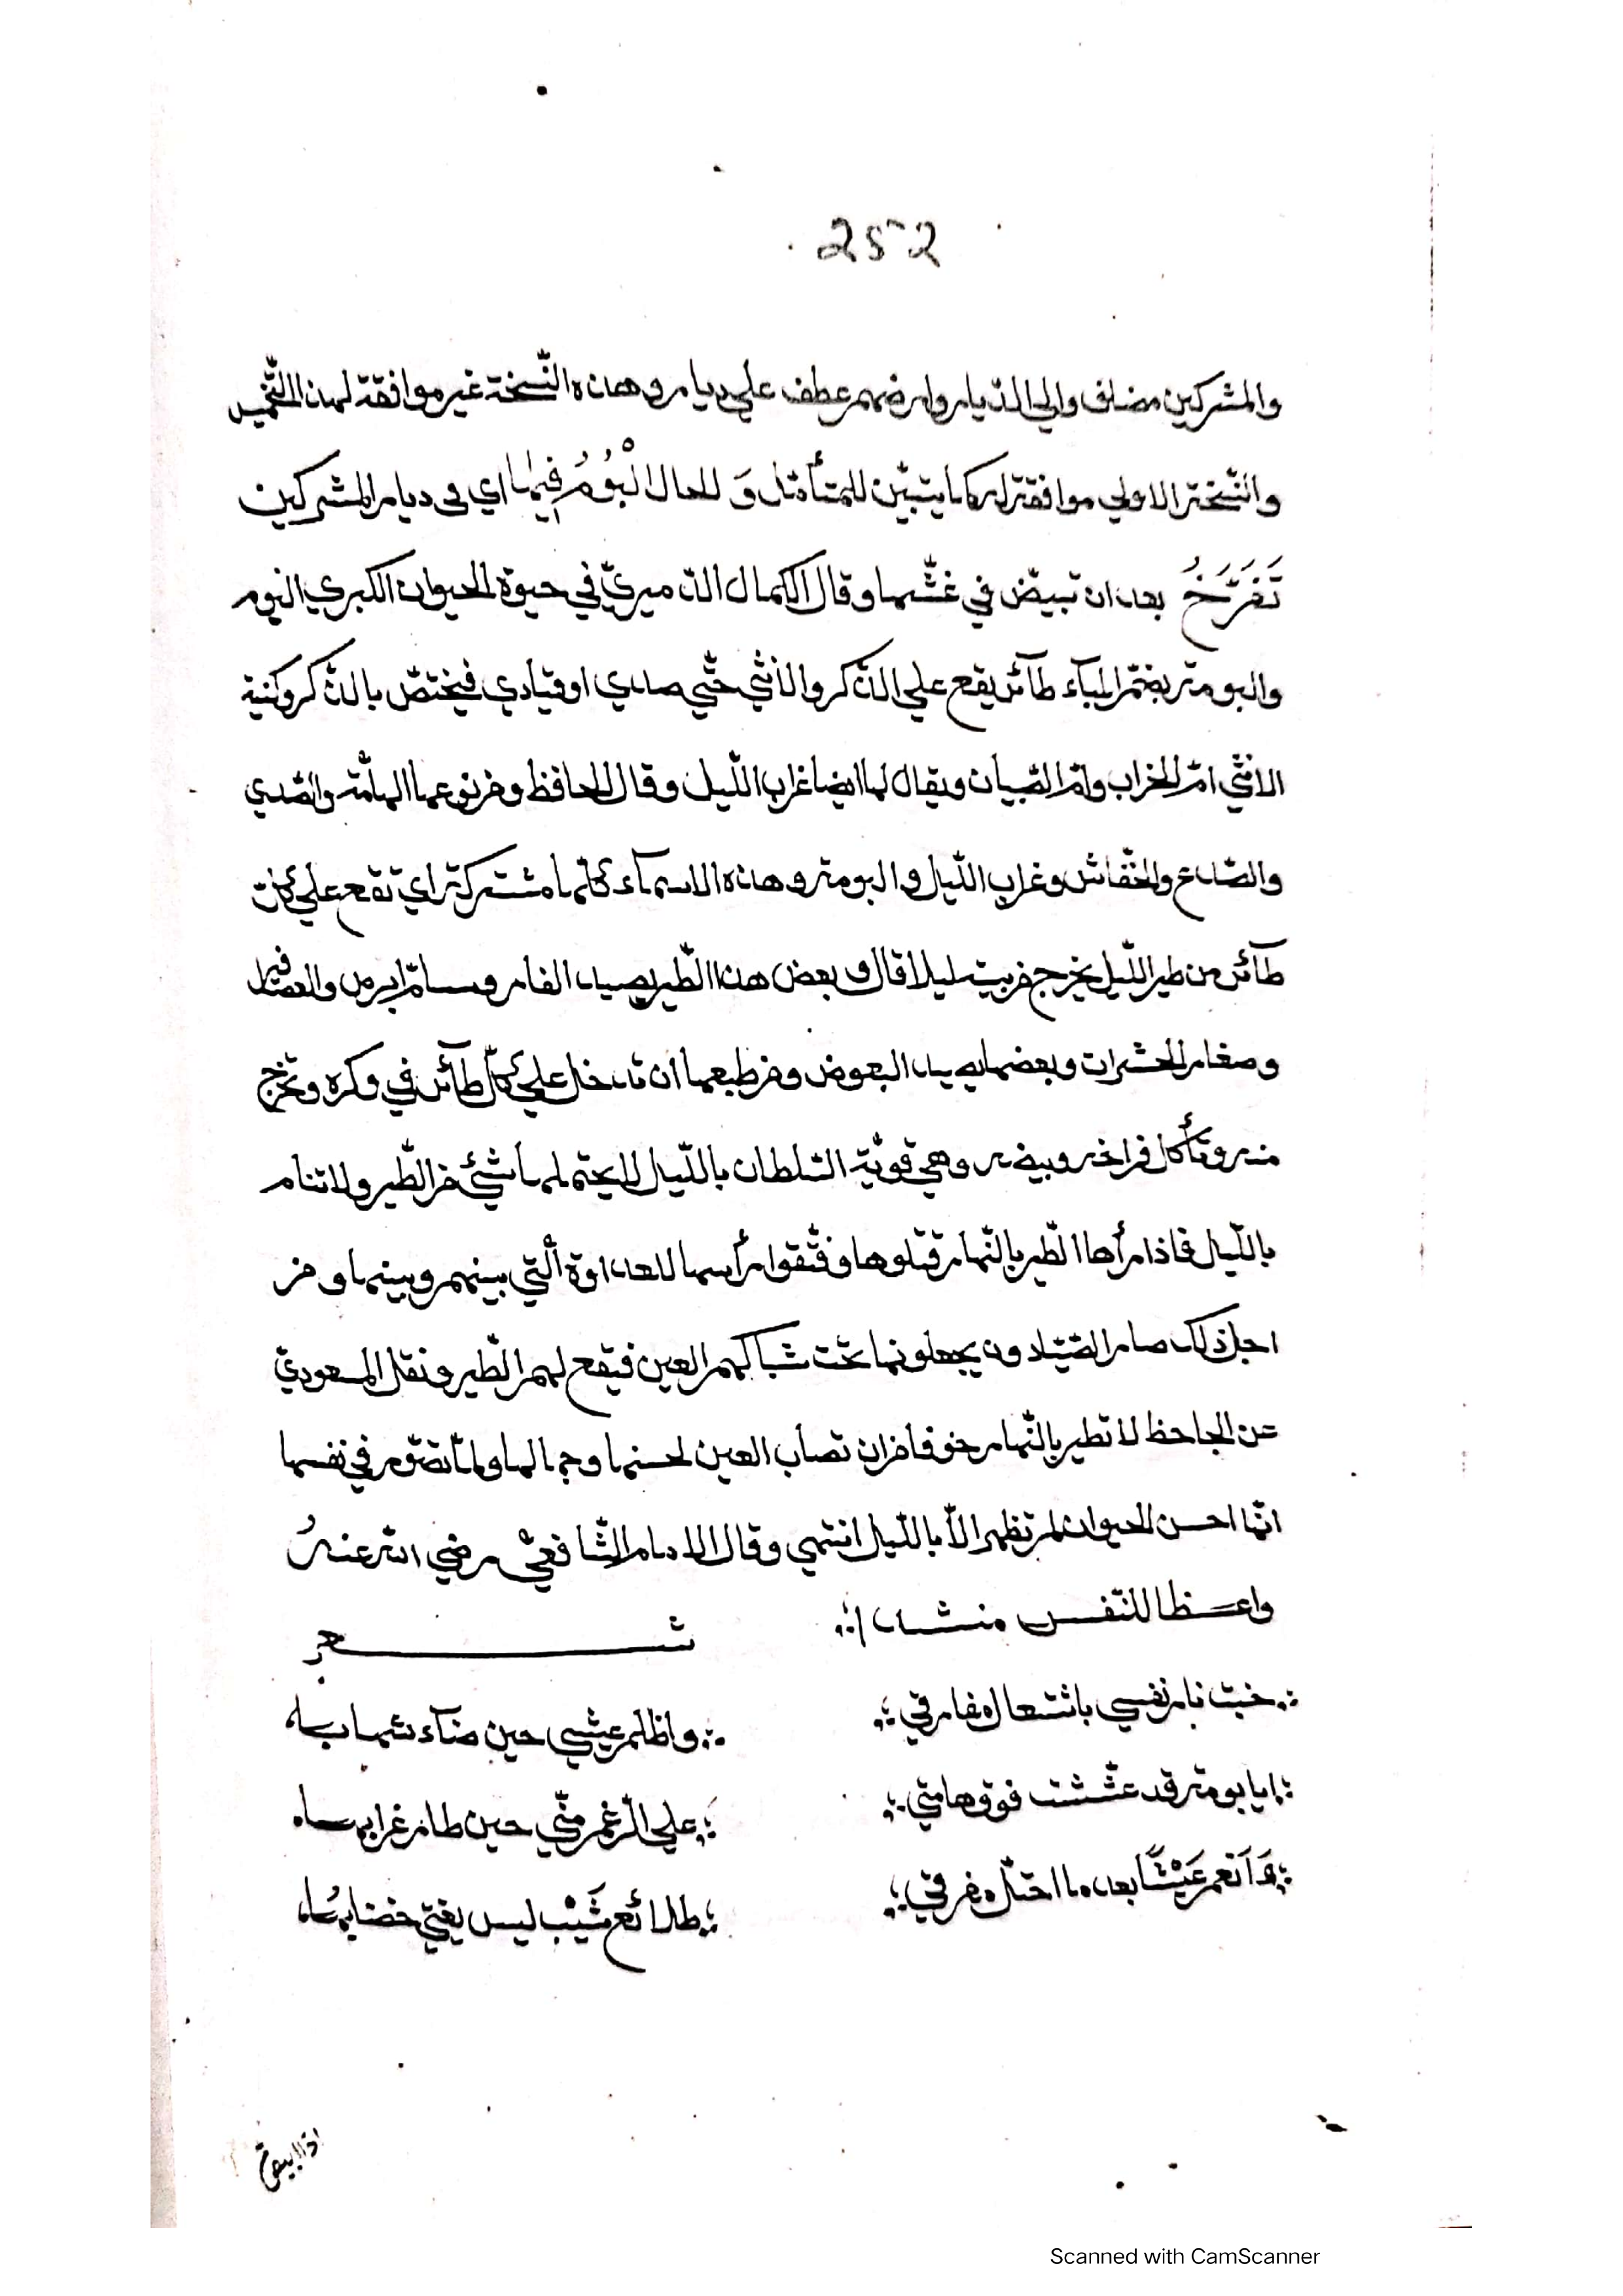 252
والمشركين مضاف والي الدّيار وارضهم عطف علي ديار وهذه النّسخة غير موافقة لهذا التّخميس
والنّسخة الاولي موافقة له كما يتبيّن للمتأمّل وَ للحال الْبُوْمُ فِيْهَا اي في ديار المشركين
تَفَرَّخُ بعد ان تبيّض في عشّها وقال الكمال الدّميريّ في حيوة الحيوان الكبري البوم
والبومة بضمّ الباء طآئر يقع علي الذّكر والانثي حتّي صدي او قيادي فيختصّ بالذّكر وكنية
الانثي امّ الخراب وامّ الصّبيان ويقال لها ايضا غراب اللّيل وقال الحافظ ومن نوعها الهامّة والصّدي
والضّدع والخفّاش وغراب اللّيل والبومة وهذه الاسمآء كلّها مشتركة اي تقع علي كلّ
طآئر من طير اللّيل يخرج من بيته ليلا قال وبعض هذا الطّير يصيد الفار وسامّ ابرص والعصافير
وصغار الحشرات وبعضها يصيد البعوض ومن طبعها ان تدخل علي كلّ طآئر في وكره وتخرج
منه وتأكل فراخه وبيضه وهي قويّة السّلطان باللّيل لا يحتملها شيئ من الطّير ولا تنام
باللّيل فاذا رأها الطّير بالنّهار قتلوها ونتّفوا رأسها للعداوة الّتي بينهم وبينها ومن
اجل ذلك صار الصّيّادون يجعلونها تحت شباكهم العين فيقع لهم الطّير ونقل المسعوديّ
عن الجاحظ لا تطير بالنّهار خوفا من ان تصاب العين لحسنها وجمالها ولمّا تصوّر في نفسها
انّها احسن الحيوان لم تظهر الّا باللّيل انتهي وقال الامام الشّافعيّ رضي الله عنهُ
واعظا للنّفس منشدا
شعر
خبت نار نفسي باشتعال مفارقي
واظلم عيشي حين ضآء شهابها
ايا بومة قد عشّشت فوق هامتي
علي الرّغم منّي حين طار غرابها
وَاَنعم عَيْشًا بعد ما احتلّ مفرقي
طلائع شَيْب ليس يغني خضابُها
Scanned with CamScanner